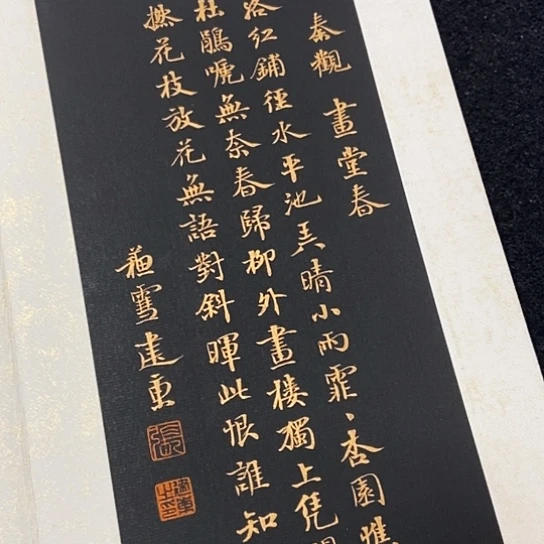 秦觀 畫堂春
落紅鋪徑水平池弄晴小雨霏〻杏園憔
杜鵑嗁無奈春歸柳外畫樓獨上凭
撚花枝放花無語對斜暉此恨誰知
雪建
張